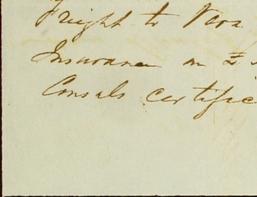 Freight to Vera
Insurance on £
Consuls certific